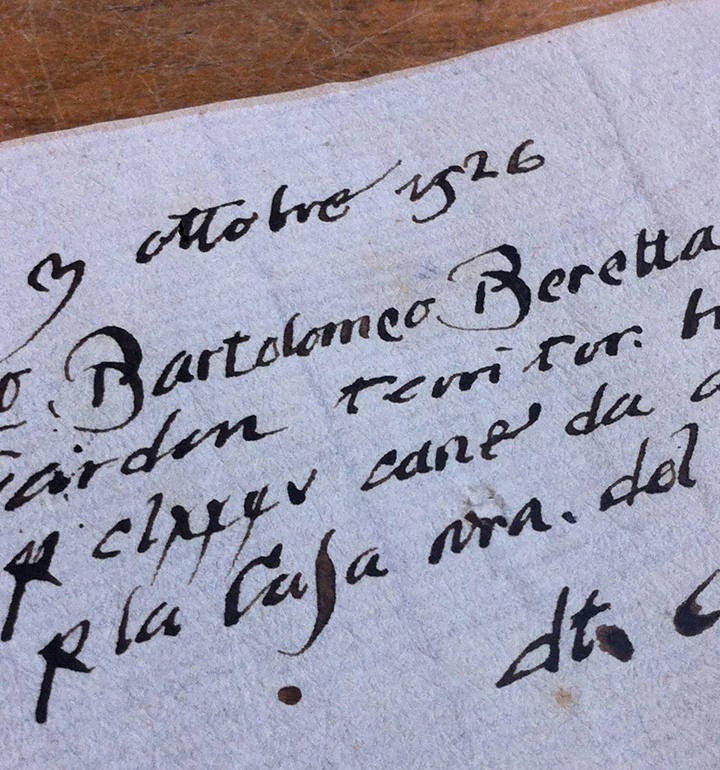 3 ottobre 1526
o Bartolomeo Beretta
Gardon territor. br
p clxxxv cane da a
p la Casa nra. del
dt.